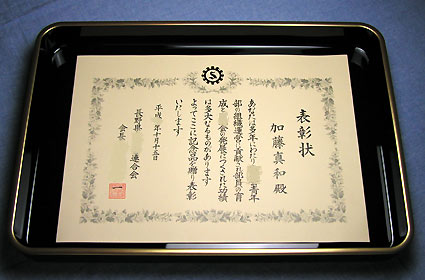 表彰状
加藤真和殿
あなたは多年にわたり 青年
部の組織運営に貢献され部員の育
成と 会の発展につくされた功績
は多大なるものがあります
よってここに記念品を贈り表彰
いたします
平成 年十月十五日
長野県 連合会
会長
S